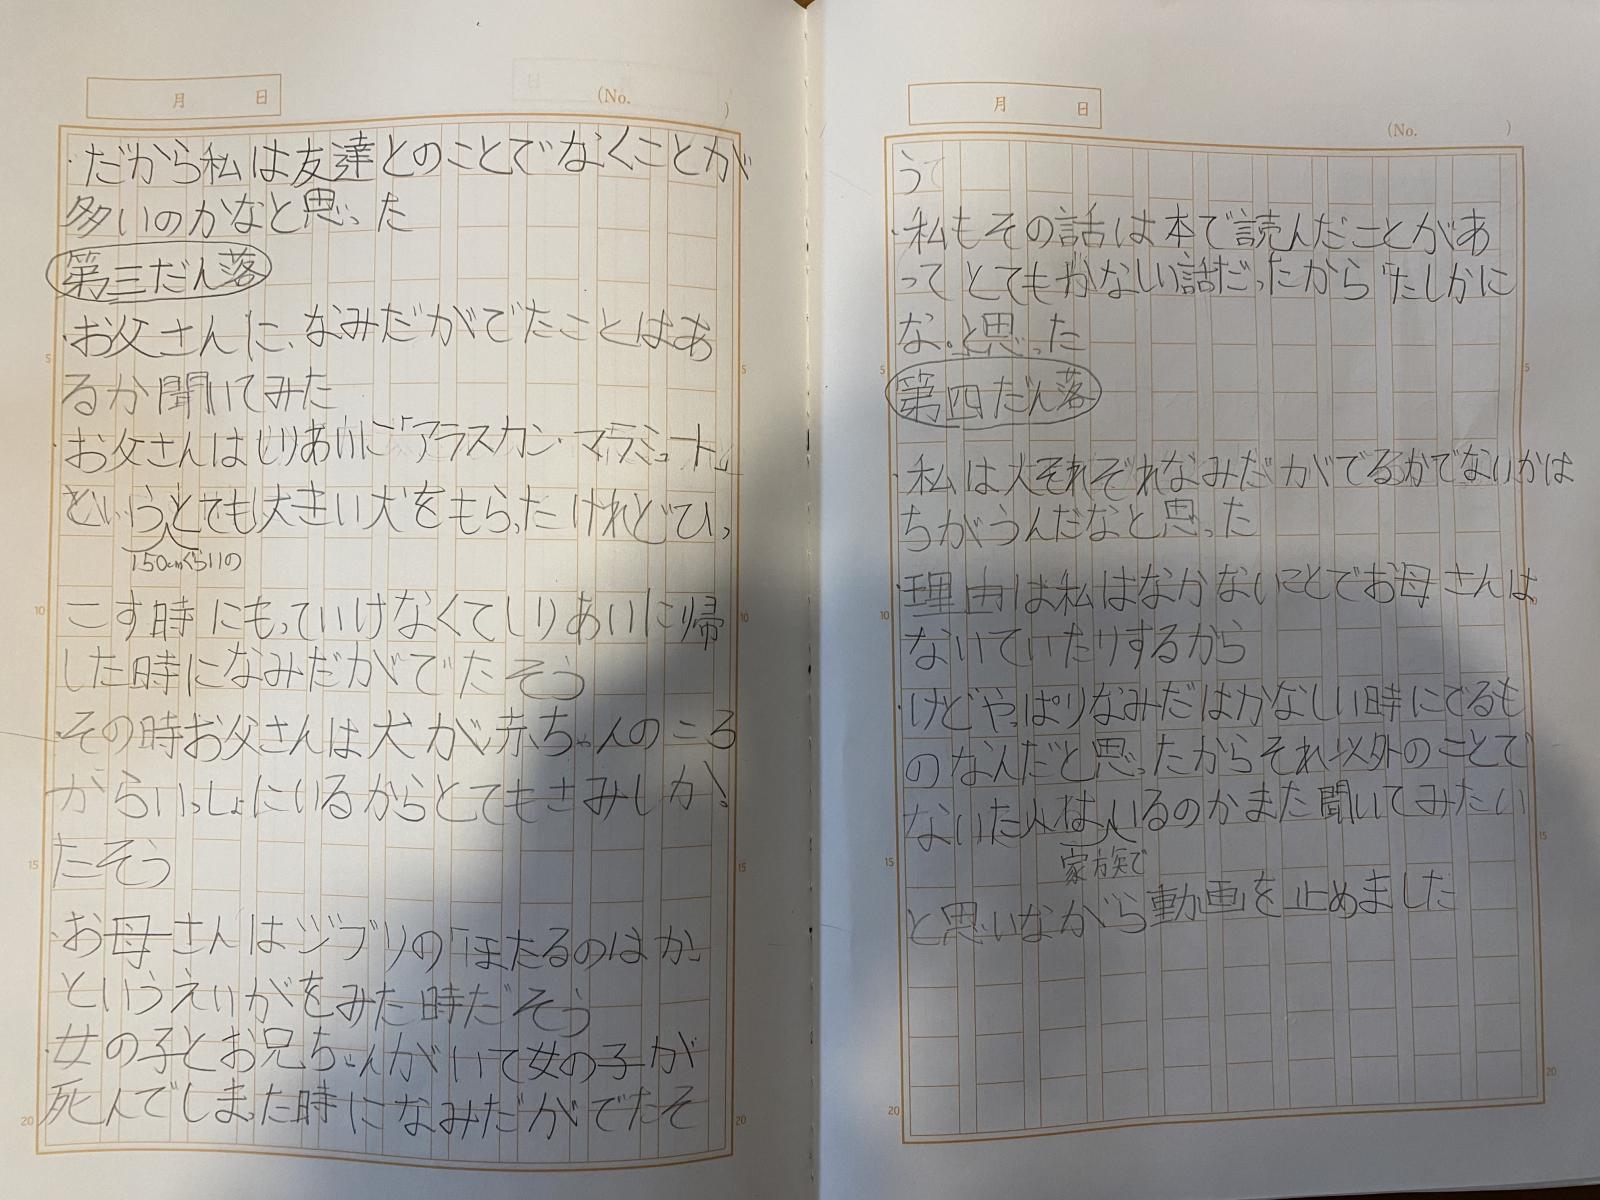 月 日
(No. )
・だから私は友達とのことでなくことが
多いのかなと思った
第三だん落
・お父さんに、なみだがでたことはあ
るか聞いてみた
・お父さんはしりあいに「アラスカン・マラミュート」
というとても大きい犬をもらったけれどひっ
150cmぐらいの
こす時にもっていけなくてしりあいに帰
した時になみだがでたそう
・その時お父さんは犬が赤ちゃんのころ
からいっしょにいるからとてもさみしかっ
たそう
・お母さんはジブリの「ほたるのはか
というえいがをみた時だそう
・女の子とお兄ちゃんがいて女の子が
死んでしまった時になみだがでたそ
5
10
15
20
月 日
(No. )
う
・私もその話は本で読んだことがあ
って とてもかなしい話だったから「たしかに
な。と思った
第四だん落
・私は人それぞれなみだがでるかでないかは
ちがうんだなと思った
理由は私はなかないことでお母さんは
ないていたりするから
・けどやっぱりなみだはかなしい時にでるも
のなんだと思ったからそれ以外のことで
ないた人はいるのかまた聞いてみたい
家族で
と思いながら動画を止めました
5
10
15
20